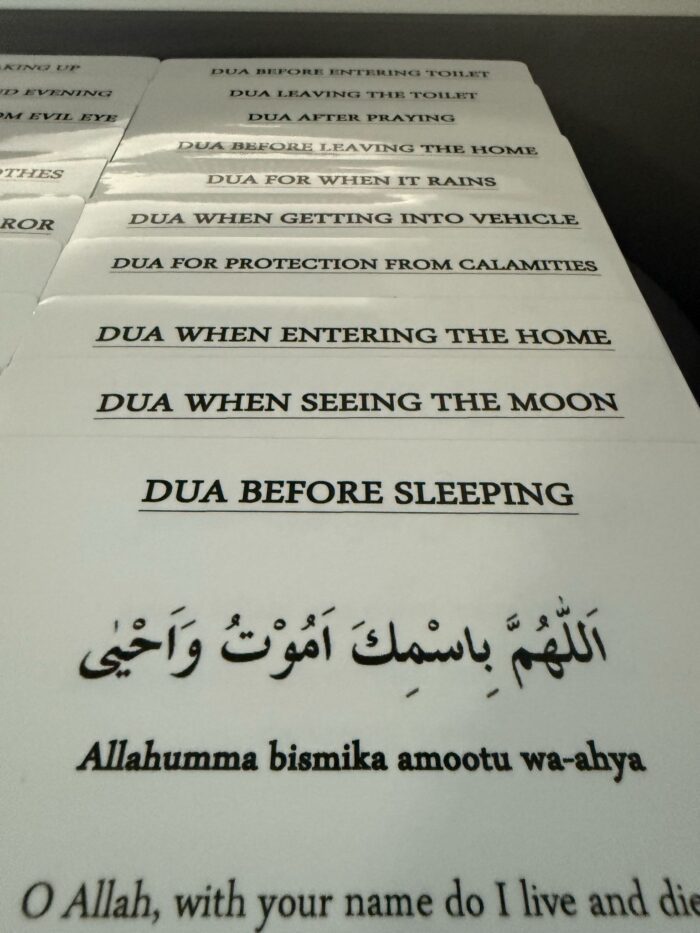 AKING UP
D EVENING
OM EVIL EYE
OTHES
ROR
DUA BEFORE ENTERING TOILET
DUA LEAVING THE TOILET
DUA AFTER PRAYING
DUA BEFORE LEAVING THE HOME
DUA FOR WHEN IT RAINS
DUA WHEN GETTING INTO VEHICLE
DUA FOR PROTECTION FROM CALAMITIES
DUA WHEN ENTERING THE HOME
DUA WHEN SEEING THE MOON
DUA BEFORE SLEEPING
اَللّٰهُمَّ بِاسْمِكَ اَمُوْتُ وَاَحْيٰى
Allahumma bismika amootu wa-ahya
O Allah, with your name do I live and die